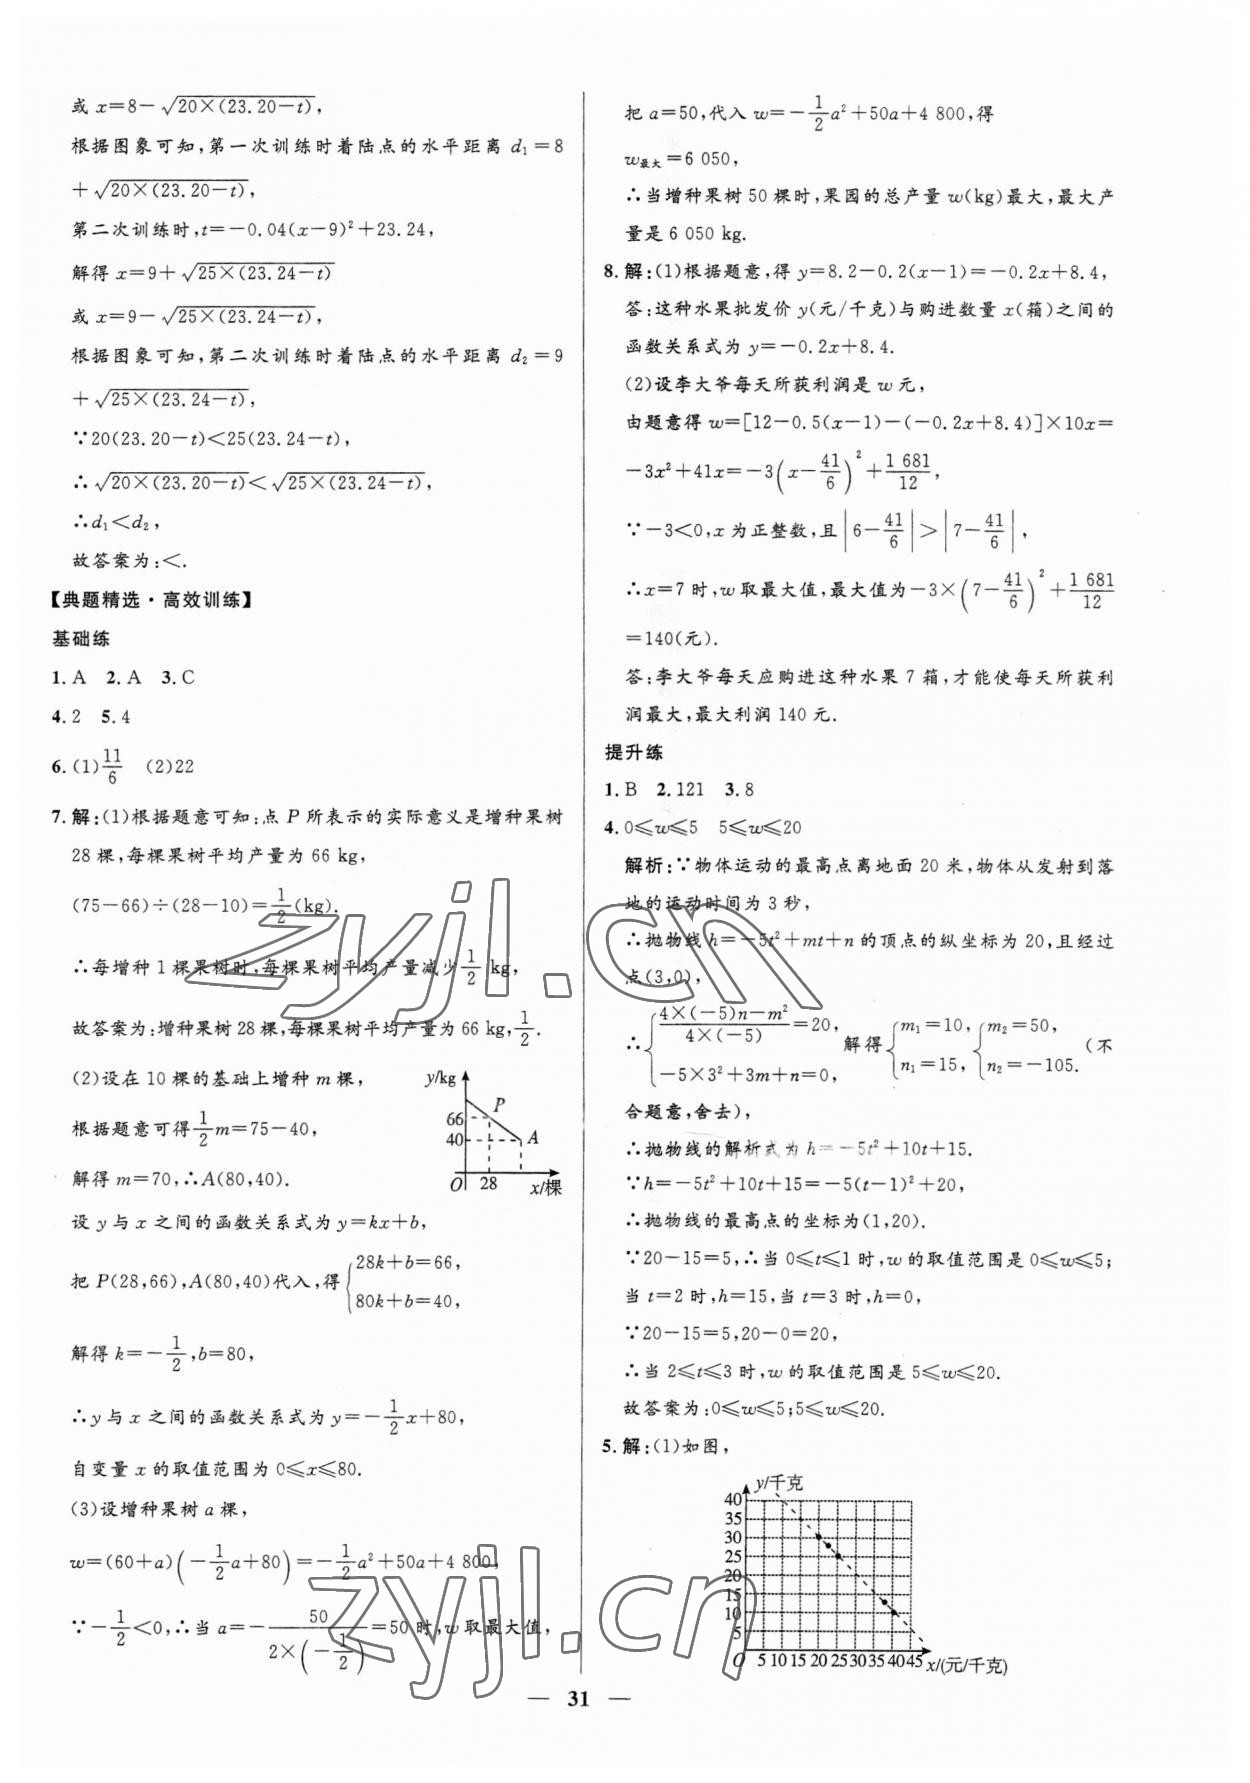 或 x=8-√20×(23.20-t),
根据图象可知,第一次训练时着陆点的水平距离 d₁=8
+√20×(23.20-t),
第二次训练时,t=-0.04(x-9)²+23.24,
解得 x=9+√25×(23.24-t)
或 x=9-√25×(23.24-t),
根据图象可知,第二次训练时着陆点的水平距离 d₂=9
+√25×(23.24-t),
∵20(23.20-t)<25(23.24-t),
∴√20×(23.20-t)<√25×(23.24-t),
∴d₁<d₂,
故答案为:<.
【典题精选·高效训练】
基础练
1.A 2.A 3.C
4.2 5.4
6.(1)11/6 (2)22
7.解:(1)根据题意可知:点 P 所表示的实际意义是增种果树
28 棵,每棵果树平均产量为 66 kg,
(75-66)÷(28-10)=1/2(kg).
∴每增种 1 棵果树时,每棵果树平均产量减少1/2 kg,
故答案为:增种果树 28 棵,每棵果树平均产量为 66 kg,1/2.
(2)设在 10 棵的基础上增种 m 棵,
根据题意可得1/2m=75-40,
解得 m=70,∴A(80,40).
y/kg
66
40
P
A
O 28 x/棵
设 y 与 x 之间的函数关系式为 y=kx+b,
把 P(28,66),A(80,40)代入,得{28k+b=66,
80k+b=40,
解得 k=-1/2,b=80,
∴y 与 x 之间的函数关系式为 y=-1/2x+80,
自变量 x 的取值范围为 0≤x≤80.
(3)设增种果树 a 棵,
w=(60+a)(-1/2a+80)=-1/2a²+50a+4 800,
∵-1/2<0,∴当 a=-50/(2×(-1/2))=50 时,w 取最大值,
把 a=50,代入 w=-1/2a²+50a+4 800,得
w最大=6 050,
∴当增种果树 50 棵时,果园的总产量 w(kg)最大,最大产
量是 6 050 kg.
8.解:(1)根据题意,得 y=8.2-0.2(x-1)=-0.2x+8.4,
答:这种水果批发价 y(元/千克)与购进数量 x(箱)之间的
函数关系式为 y=-0.2x+8.4.
(2)设李大爷每天所获利润是 w 元,
由题意得 w=[12-0.5(x-1)-(-0.2x+8.4)]×10x=
-3x²+41x=-3(x-41/6)²+1 681/12,
∵-3<0,x 为正整数,且|6-41/6|>|7-41/6|,
∴x=7 时,w 取最大值,最大值为-3×(7-41/6)²+1 681/12
=140(元).
答:李大爷每天应购进这种水果 7 箱,才能使每天所获利
润最大,最大利润 140 元.
提升练
1.B 2.121 3.8
4.0≤w≤5 5≤w≤20
解析:∵物体运动的最高点离地面 20 米,物体从发射到落
地的运动时间为 3 秒,
∴抛物线 h=-5t²+mt+n 的顶点的纵坐标为 20,且经过
点(3,0),
∴{(4×(-5)n-m²)/(4×(-5))=20, 解得{m₁=10, {m₂=50, (不
-5×3²+3m+n=0, n₁=15, n₂=-105.
合题意,舍去),
∴抛物线的解析式为 h=-5t²+10t+15.
∵h=-5t²+10t+15=-5(t-1)²+20,
∴抛物线的最高点的坐标为(1,20).
∵20-15=5,∴当 0≤t≤1 时,w 的取值范围是 0≤w≤5;
当 t=2 时,h=15,当 t=3 时,h=0,
∵20-15=5,20-0=20,
∴当 2≤t≤3 时,w 的取值范围是 5≤w≤20.
故答案为:0≤w≤5;5≤w≤20.
5.解:(1)如图,
y/千克
40
35
30
25
20
15
10
5
O 5 10 15 20 25 30 35 40 45 x/(元/千克)
— 31 —
zyjl.cn
zyjl.cn